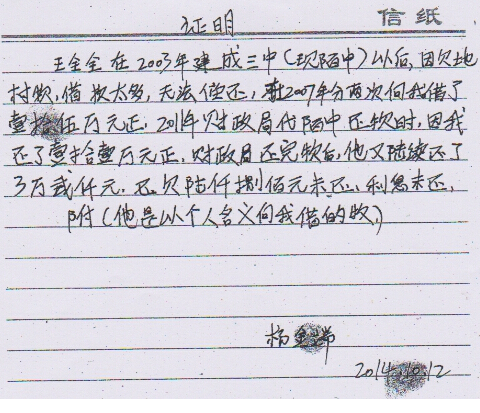 信纸
证明
王全全在2003年建成三中(现陌中)以后,因欠地
材款,借款太多,无法偿还,在2007年分两次向我借了
壹拾伍万元正,2011年财政局代陌中还款时,因我
还了壹拾壹万元正,财政局还完款后,他又陆续还了
3万贰仟元.还欠陆仟捌佰元未还,利息未还,
附(他是以个人名义向我借的款,)
杨
2014.10.12